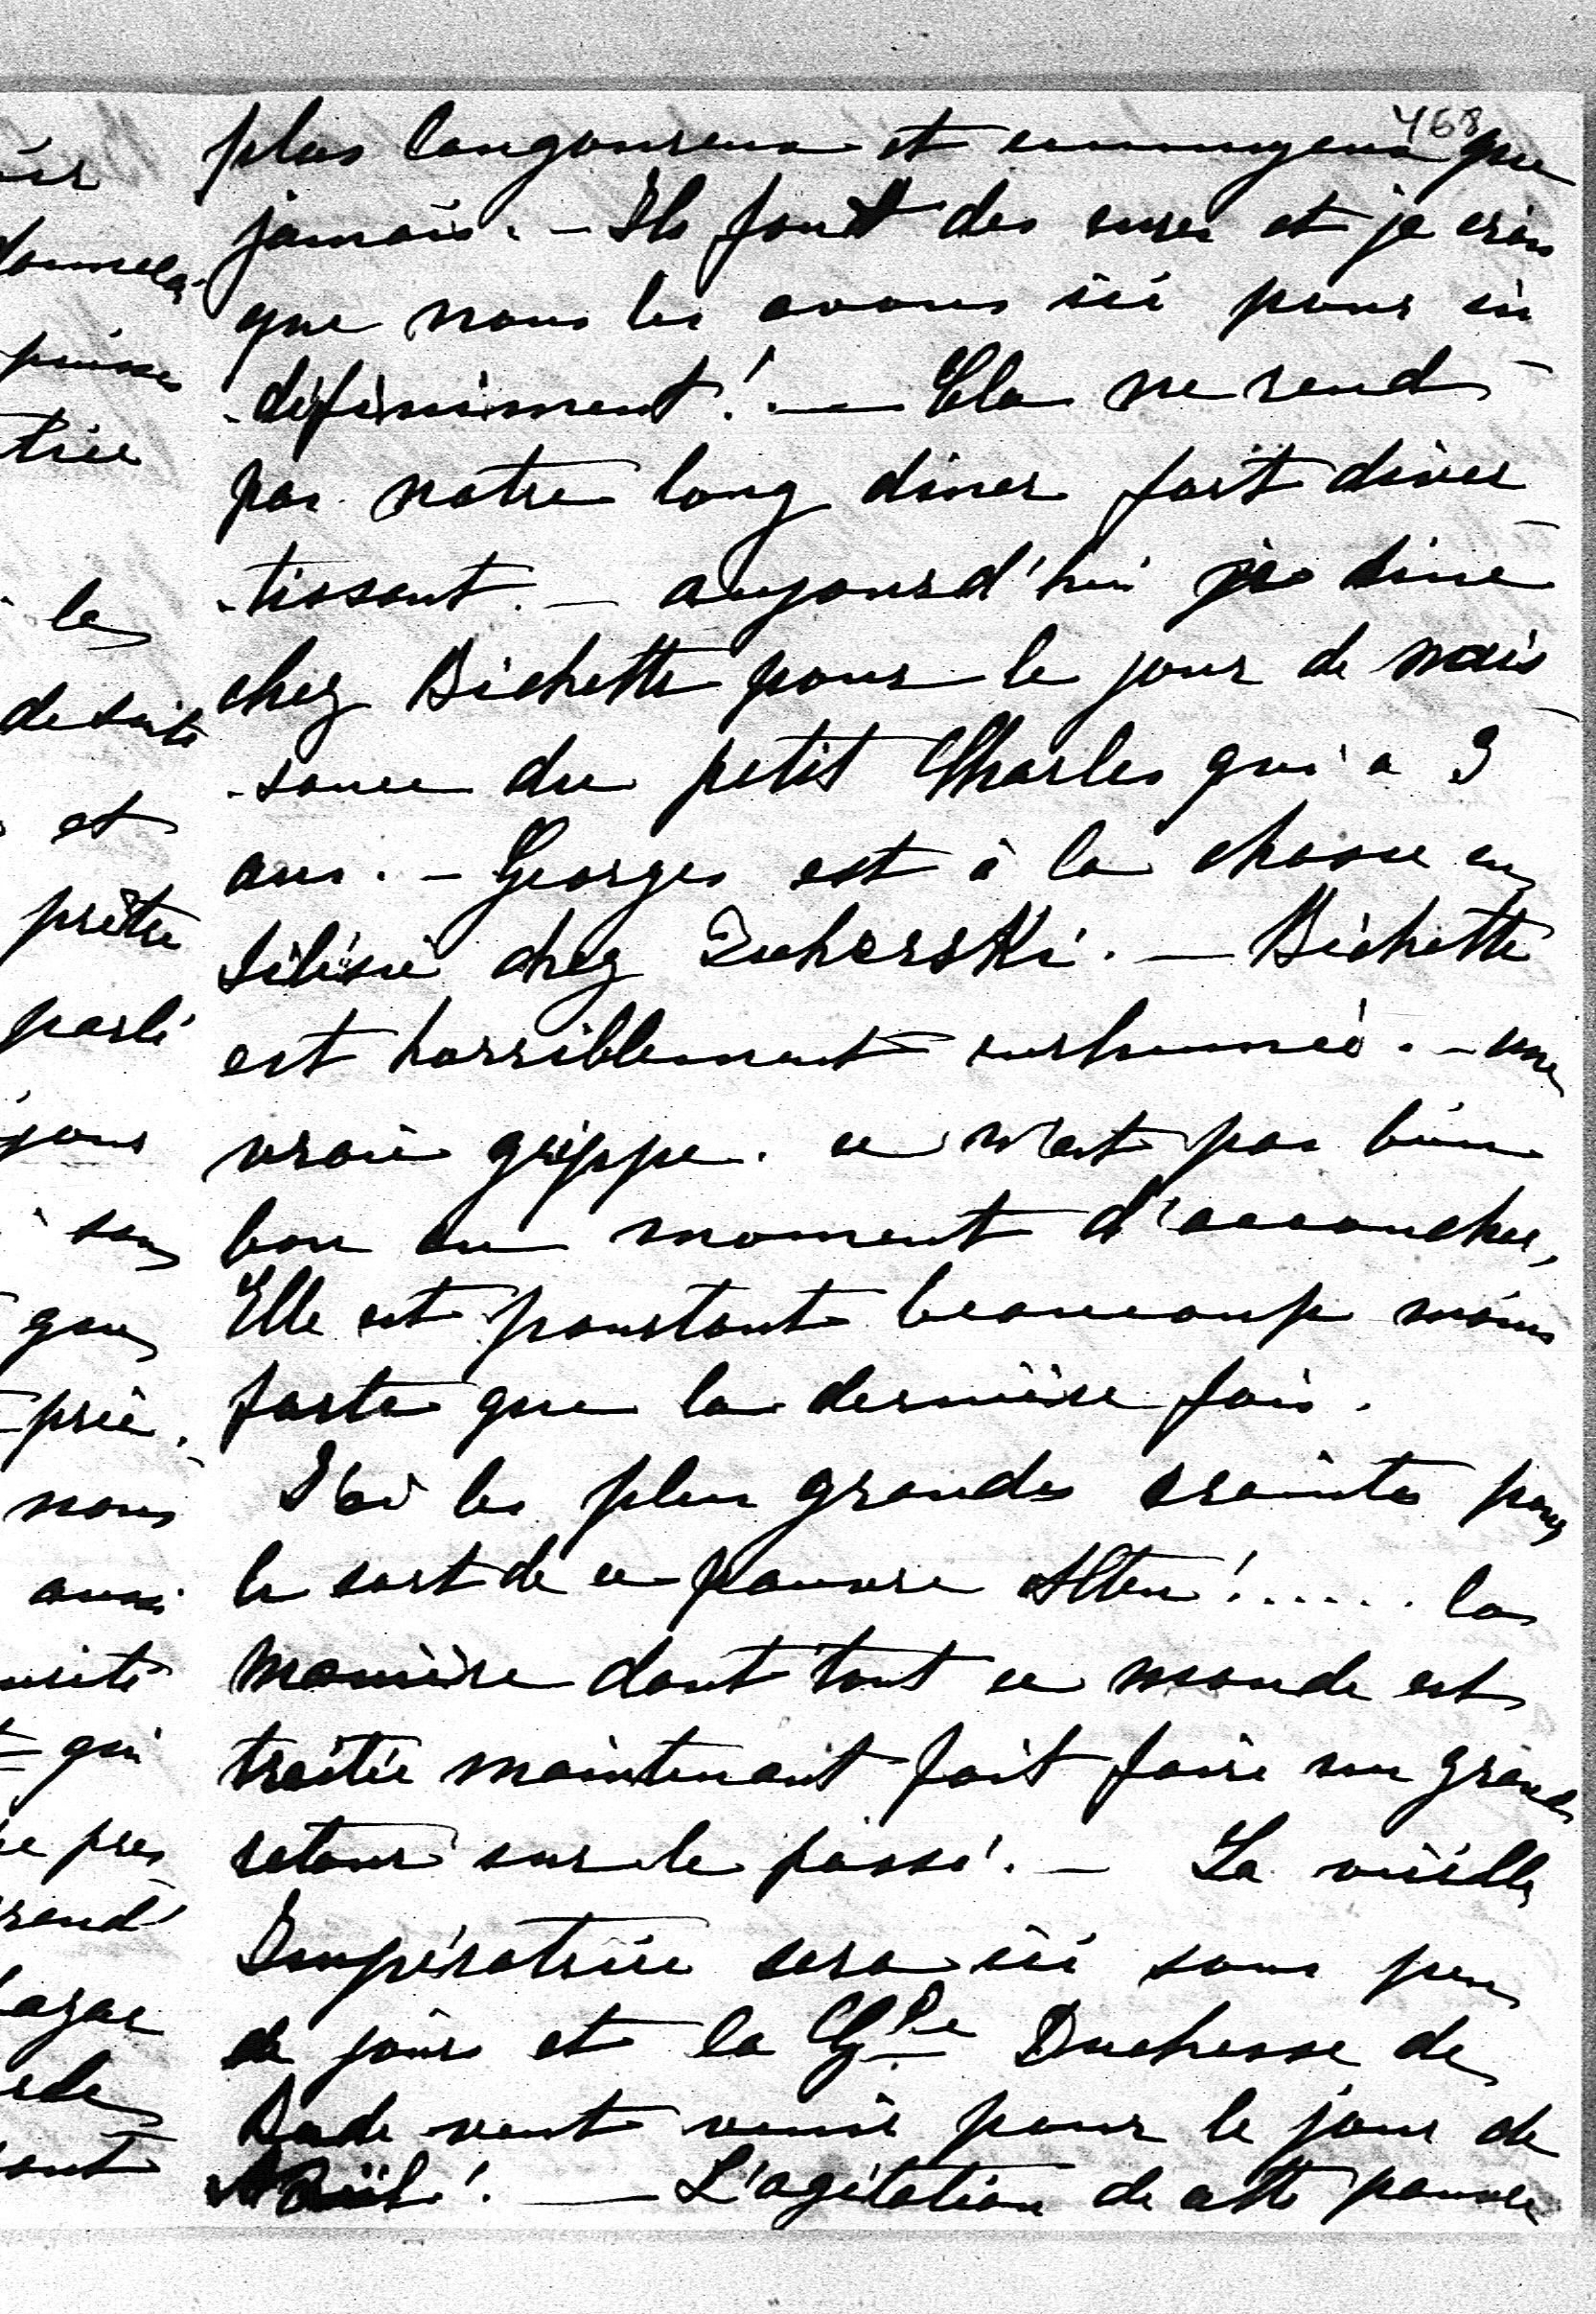 468
plus langoureux et ennuyeux que
jamais. – Ils font des cures et je crois
que nous les avons ici pour in
-définiment! – Cela ne rend
pas notre long diner fort diver
-tissant. – aujourd'hui je dine
chez Bichette pour le jour de nais
-sance du petit Charles qui a 3
ans. – Georges est à la chasse en
Silésie chez – Bichette
est horriblement enrhumée. – une
vraie grippe. ce n'est pas bien
bon au moment d'accoucher,
Elle est pourtant beaucoup moins
forte que la dernière fois.
J'ai les plus grandes craintes pour
le sort de ce pauvre Alten!...... la
manière dont tout ce monde est
traitée maintenant fait faire un grand
retour sur le passé. – La vieille
Impératrice sera ici sous peu
de jours et la Gde Duchesse de
Bade veut venir pour le jour de
Noël! – L'agitation de cette pauvre